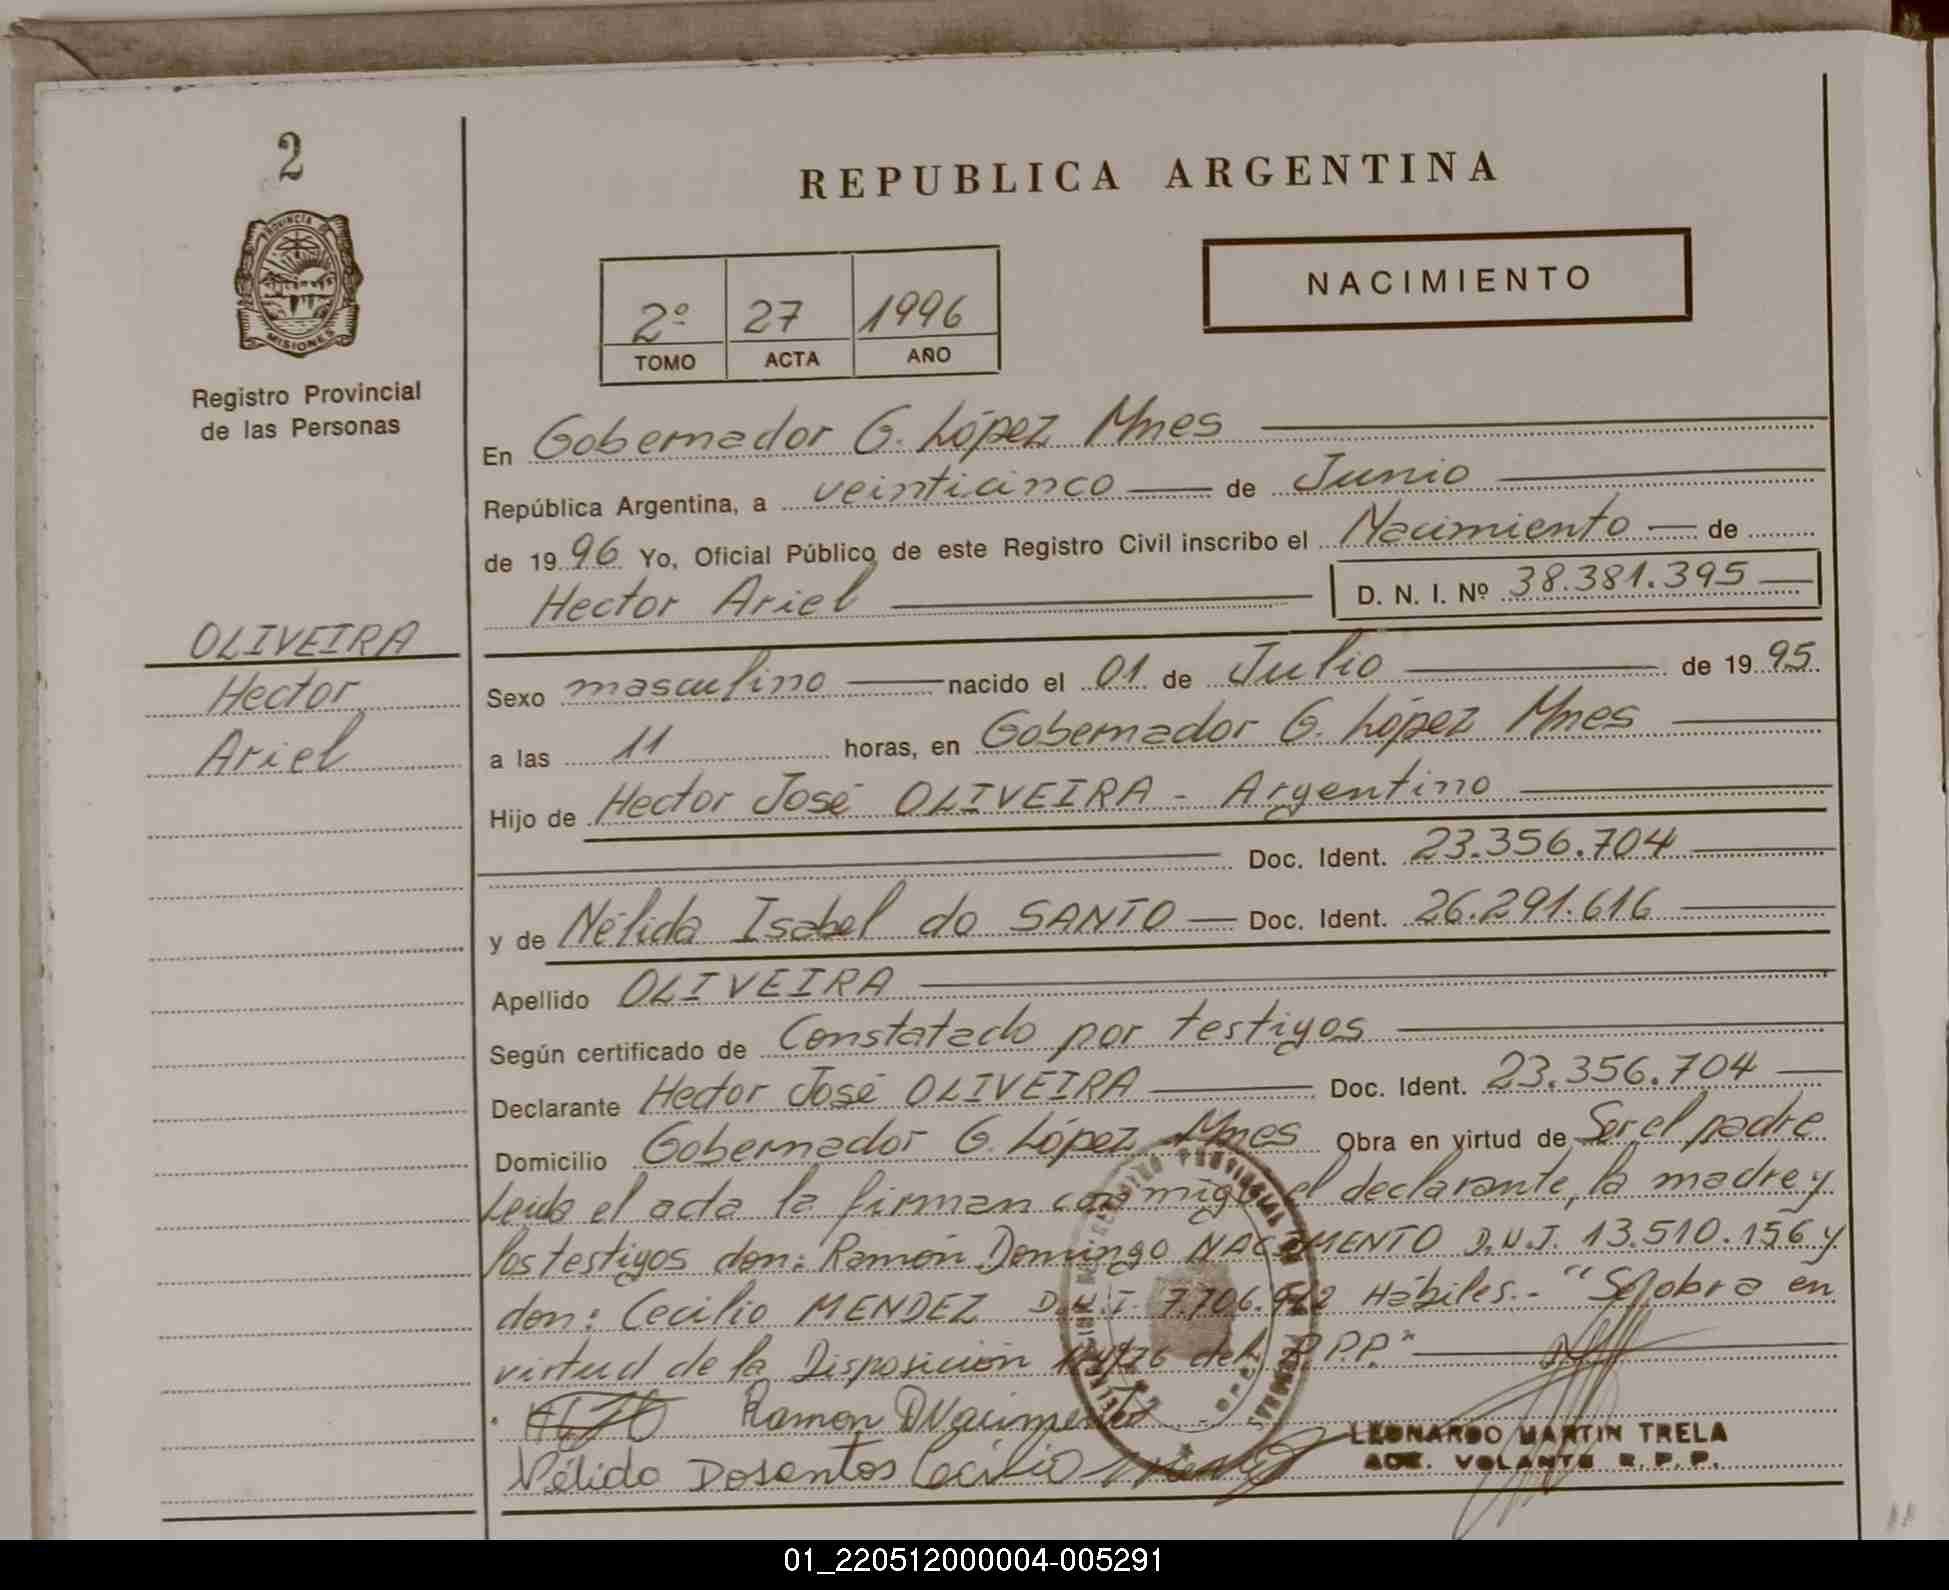 2
PROVINCIA DE
MISIONES
Registro Provincial
de las Personas
OLIVEIRA
Hector
Ariel
REPUBLICA ARGENTINA
NACIMIENTO
2º 27 1996
TOMO ACTA AÑO
En Gobernador G. López Mnes
República Argentina, a veinticinco de Junio
de 1996 Yo, Oficial Público de este Registro Civil inscribo el Nacimiento de
Hector Ariel D. N. I. Nº 38.381.395
Sexo masculino nacido el 01 de Julio de 1995
a las 11 horas, en Gobernador G. López Mnes
Hijo de Hector José OLIVEIRA - Argentino
Doc. Ident. 23.356.704
y de Nélida Isabel do SANTO Doc. Ident. 26.291.616
Apellido OLIVEIRA
Según certificado de Constatado por testigos
Declarante Hector José OLIVEIRA Doc. Ident. 23.356.704
Domicilio Gobernador G. López Mnes Obra en virtud de Ser el padre
Leída el acta la firman conmigo el declarante, la madre y
los testigos don: Ramón Domingo NACIMENTO D.N.I. 13.510.156 y
don: Cecilio MENDEZ D.N.I. Hábiles.- "Se obra en
virtud de la Disposición del R.P.P."
Ramon D Nacimento
Nélida Dosantos Cecilio
LEONARDO MARTIN TRELA
VOLANTE R.P.P.
01_220512000004-005291